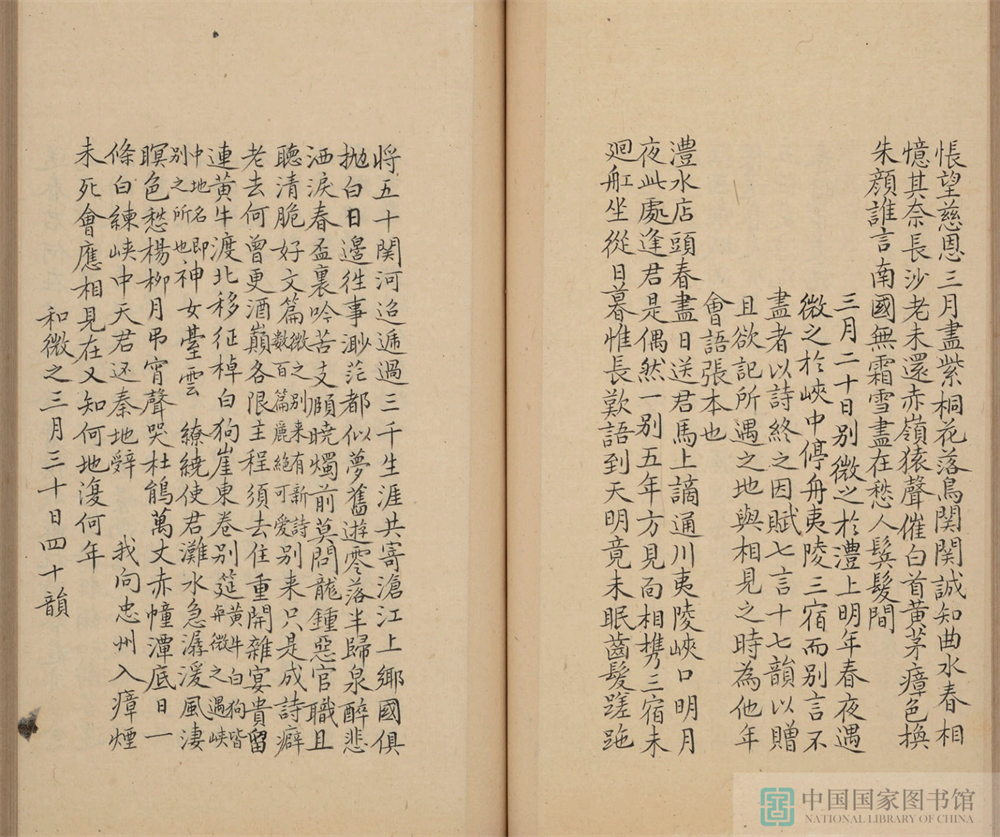 悵望慈恩三月盡紫桐花落鳥関関誠知曲水春相
憶其奈長沙老未還赤嶺猿聲催白首黄茅瘴色換
朱顔誰言南國無霜雪盡在愁人鬂髮間
三月二十日別微之於澧上明年春夜遇
微之於峽中停舟夷陵三宿而別言不
盡者以詩終之因賦七言十七韻以贈
且欲記所遇之地與相見之時為他年
會語張本也
澧水店頭春盡日送君馬上謫通川夷陵峽口明月
夜此處逢君是偶然一別五年方見面相携三宿未
廻舡坐從日暮惟長歎語到天明竟未眠齒髮蹉跎
將五十関河迢遞過三千生涯共寄滄江上鄉國俱
抛白日邊徃事渺茫都似夢舊遊零落半歸泉醉悲
洒淚春盃裏吟苦支頤曉燭前莫問龍鍾惡官職且
聽清脆好文篇微之別来有新詩數百篇麗絶可愛別来只是成詩癖
老去何曽更酒巔各限主程須去住重開離宴貴留
連黄牛渡北移征棹白狗崖東卷別筵黄牛白狗皆峽
中地名即舟微之遇別之所也神女臺雲繚繞使君灘水急潺湲風淒
暝色愁楊柳月弔宵聲哭杜鵑萬丈赤幢潭底日一
條白練峽中天君还秦地辤我向忠州入瘴煙
未死會應相見在又知何地復何年
和微之三月三十日四十韻
中国国家图书馆
NATIONAL LIBRARY OF CHINA